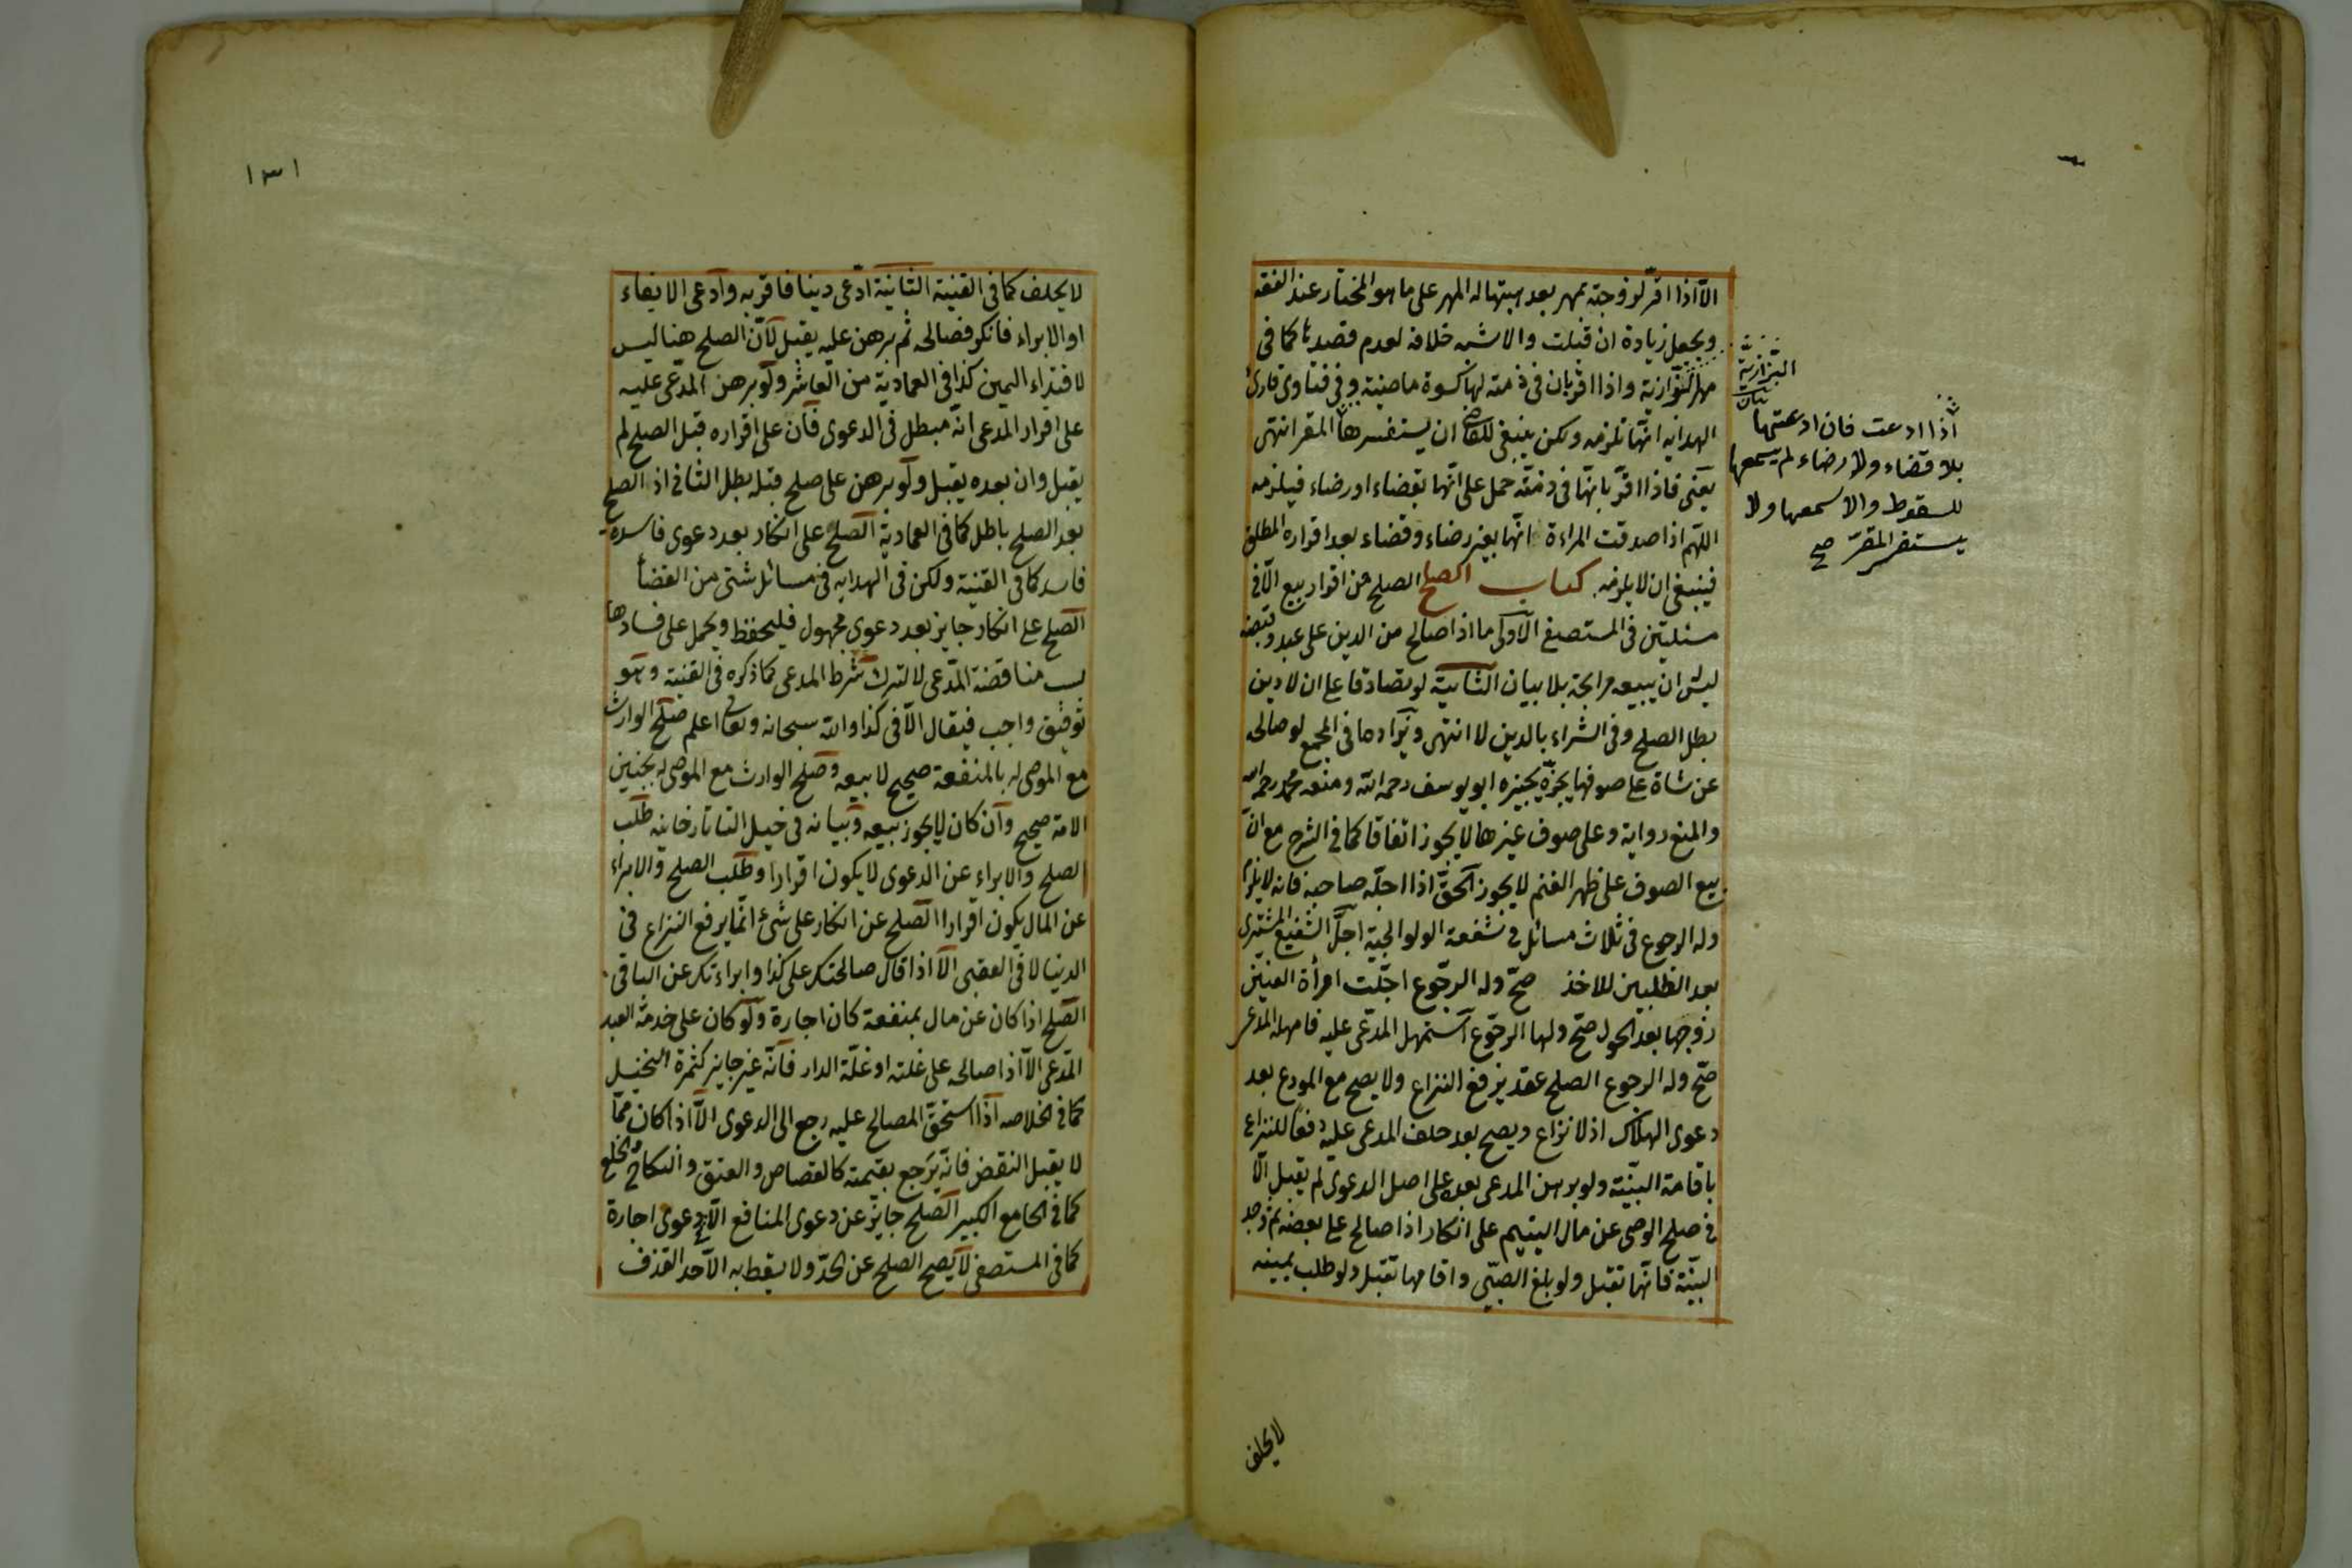 الا اذا اقر لزوجته بمهر بعد هبتها له المهر على ما هو المختار عند الفقيه
ويجعل زيادة ان قبلت والاشبه خلافه لعدم قصدها كما في
مهر البزازية واذا اقر بان في ذمته لها كسوة ماضية وفي فتاوى قارئ
الهداية انها تلزمه ولكن ينبغي للقاضي ان يستفسرها المقر انتهى
يعني فاذا اقر بانها في ذمته حمل على انها بقضاء او رضاء فيلزمه
اللهم اذا صدقت المراءة انها بغير رضاء وقضاء بعد اقراره المطلق
فينبغي ان لا يلزمه كتاب الصلح الصلح عن اقرار بيع الا في
مسئلتين في المستصفى الاولى ما اذا صالح من الدين على عبد وقبضه
ليس ان يبيعه مرابحة بلا بيان الثانية لو تصادقا على ان لا دين
بطل الصلح وفي الشراء بالدين لا انتهى ويزاد ما في المجمع لو صالحه
عن شاة على صوفها يجزه يجيزه ابو يوسف رحمه الله ومنعه محمد رحمه الله
والمنع رواية وعلى صوف غيرها لا يجوز اتفاقا كما في الشرح مع ان
بيع الصوف على ظهر الغنم لا يجوز الحق اذا اجله صاحبه فانه لا يلزم
وله الرجوع في ثلاث مسائل في شفعة الولوالجية اجل الشفيع المشتري
بعد الطلبين للاخذ صح وله الرجوع اجلت امرأة العنين
زوجها بعد الحول صح ولها الرجوع استمهل المدعى عليه فامهله المدعي
صح وله الرجوع الصلح عقد يرفع النزاع ولا يصح مع المودع بعد
دعوى الهلاك اذ لا نزاع ويصح بعد حلف المدعى عليه دفعا للنزاع
باقامة البينة ولو برهن المدعي بعده على اصل الدعوى لم يقبل الا
في صلح الوصي عن مال اليتيم على انكار اذا صالح على بعضه ثم وجد
البينة فانها تقبل ولو بلغ الصبي واقامها تقبل ولو طلب يمينه
البزازية
بيان
اذا ادعت فان ادعتها
بلا قضاء ولا رضاء لم يسمعها
للسقوط والا سمعها ولا
يستفسر المقر صح
لا يحلف
١٣١
لا يحلف كما في القنية الثانية ادعى دينا فاقر به وادعى الايفاء
او الابراء فانكر فصالحه ثم برهن عليه يقبل لان الصلح هنا ليس
لافتداء اليمين كذا في العمادية من العاشر ولو برهن المدعى عليه
على اقرار المدعي انه مبطل في الدعوى فان على اقراره قبل الصلح لم
يقبل وان بعده يقبل ولو برهن على صلح قبله بطل الثاني اذ الصلح
بعد الصلح باطل كما في العمادية الصلح على انكار بعد دعوى فاسدة
فاسد كما في القنية ولكن في الهداية في مسائل شتى من القضأ
الصلح على انكار جايز بعد دعوى مجهول فليحفظ ويحمل على فسادها
بسبب مناقضة المدعي لا لترك شرط المدعي كما ذكره في القنية وهو
توفيق واجب فيقال الا في كذا والله سبحانه وتعالى اعلم صلح الوارث
مع الموصى له بالمنفعة صحيح لا بيعه وصلح الوارث مع الموصى له بجنين
الامة صحيح وان كان لا يجوز بيعه وبيانه في حيل التاتارخانيه طلب
الصلح والابراء عن الدعوى لا يكون اقرارا وطلب الصلح والابراء
عن المال يكون اقرارا الصلح عن انكار على شئ انما يرفع النزاع في
الدنيا لا في العقبى الا اذا قال صالحتك على كذا وابراءتك عن الباقي
الصلح اذا كان عن مال بمنفعة كان اجارة ولو كان على خدمة العبد
المدعى الا اذا صالحه على غلته او غلة الدار فانه غير جايز كثمرة النخيل
كما في الخلاصه اذا استحق المصالح عليه رجع الى الدعوى الا اذا كان مما
لا يقبل النقض فانه يرجع بقيمته كالقصاص والعتق والنكاح والخلع
كما في الجامع الكبير الصلح جايز عن دعوى المنافع الا دعوى اجارة
كما في المستصفى لا يصح الصلح عن الحد ولا يسقط به الا حد القذف